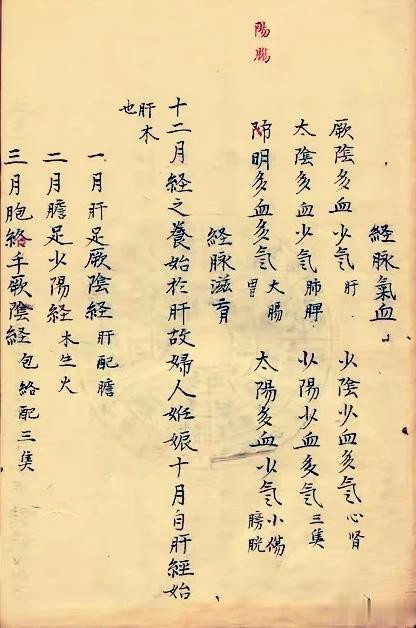 陽腸
経脉氣血
厥陰多血少气 肝 少陰少血多气 心腎
太陰多血少气 肺脾 少陽少血多气 三隻
明多血多气 大腸胃 太陽多血少气 小傷膀胱
経脉滋育
十二月経之養始於肝故婦人姙娠十月自肝経始
肝木也
一月肝足厥陰経 肝配膽
二月膽足少陽経 木生火
三月胞絡手厥陰経 包絡配三隻